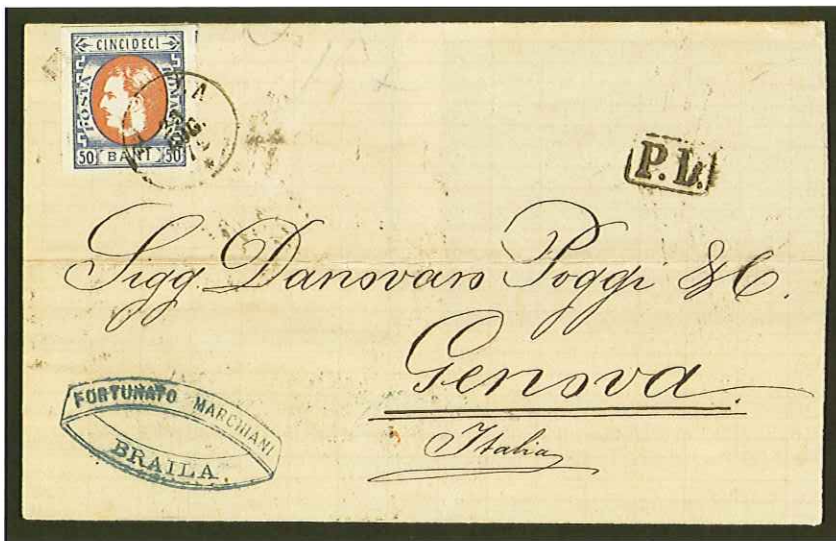 CINCI DECI
POSTA ROMANA
50 BANI 50
P.L.
Sigg. Dansvaro Poggi & C.
Genova.
Italia
FORTUNATO MARCHIANI
BRAILA.